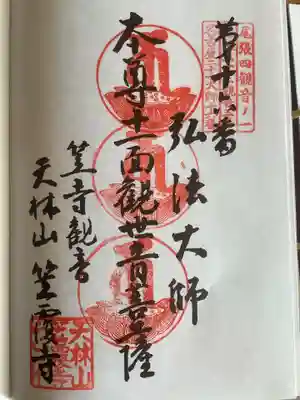 尾張四観音ノ一
第十六番
弘法大師
本尊十一面觀世音菩薩
笠寺觀音
天林山 笠覆寺
天林山